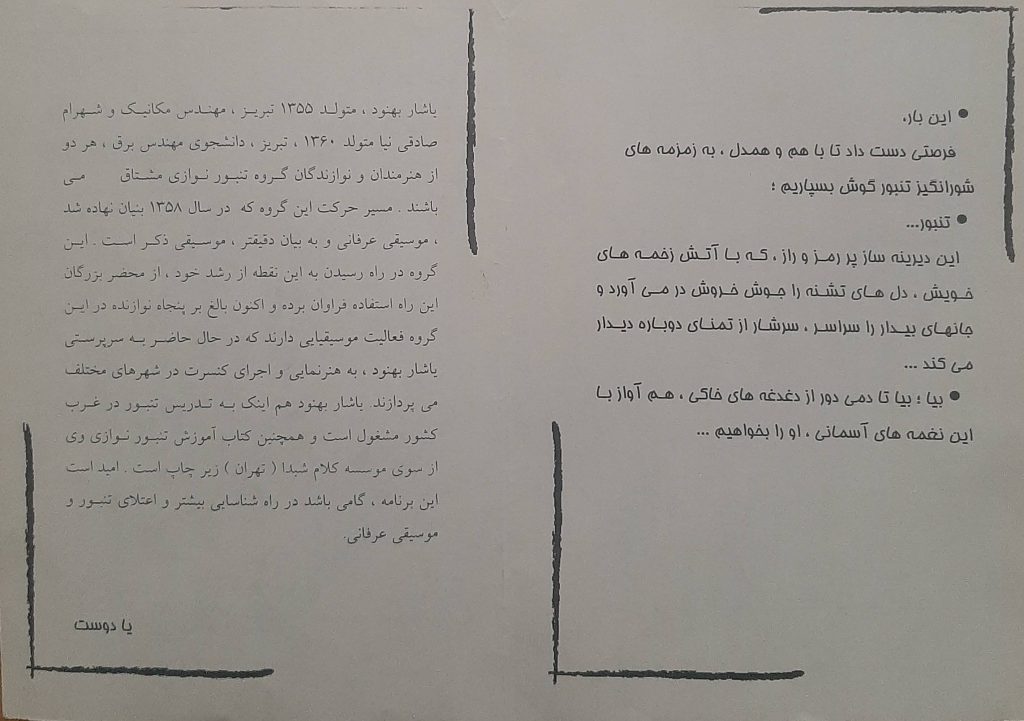 ● این بار،
فرصتی دست داد تا با هم و همدل ، به زمزمه های
شورانگیز تنبور گوش بسپاریم ؛
● تنبور...
این دیرینه ساز پر رمز و راز ، که با آتش زخمه های
خویش ، دل های تشنه را جوش خروش در می آورد و
جانهای بیدار را سراسر ، سرشار از تمنای دوباره دیدار
می کند ...
● بیا ؛ بیا تا دمی دور از دغدغه های خاکی ، هم آواز با
این نغمه های آسمانی ، او را بخواهیم ...
یاشار بهنود ، متولد ۱۳۵۵ تبریز ، مهندس مکانیک و شهرام
صادقی نیا متولد ۱۳۶۰ ، تبریز ، دانشجوی مهندس برق ، هر دو
از هنرمندان و نوازندگان گروه تنبور نوازی مشتاق می
باشند . مسیر حرکت این گروه که در سال ۱۳۵۸ بنیان نهاده شد
، موسیقی عرفانی و به بیان دقیقتر ، موسیقی ذکر است . این
گروه در راه رسیدن به این نقطه از رشد خود ، از محضر بزرگان
این راه استفاده فراوان برده و اکنون بالغ بر پنجاه نوازنده در این
گروه فعالیت موسیقیایی دارند که در حال حاضر به سرپرستی
یاشار بهنود ، به هنرنمایی و اجرای کنسرت در شهرهای مختلف
می پردازند. یاشار بهنود هم اینک به تدریس تنبور در غرب
کشور مشغول است و همچنین کتاب آموزش تنبور نوازی وی
از سوی موسسه کلام شیدا ( تهران ) زیر چاپ است . امید است
این برنامه ، گامی باشد در راه شناسایی بیشتر و اعتلای تنبور و
موسیقی عرفانی.
یا دوست